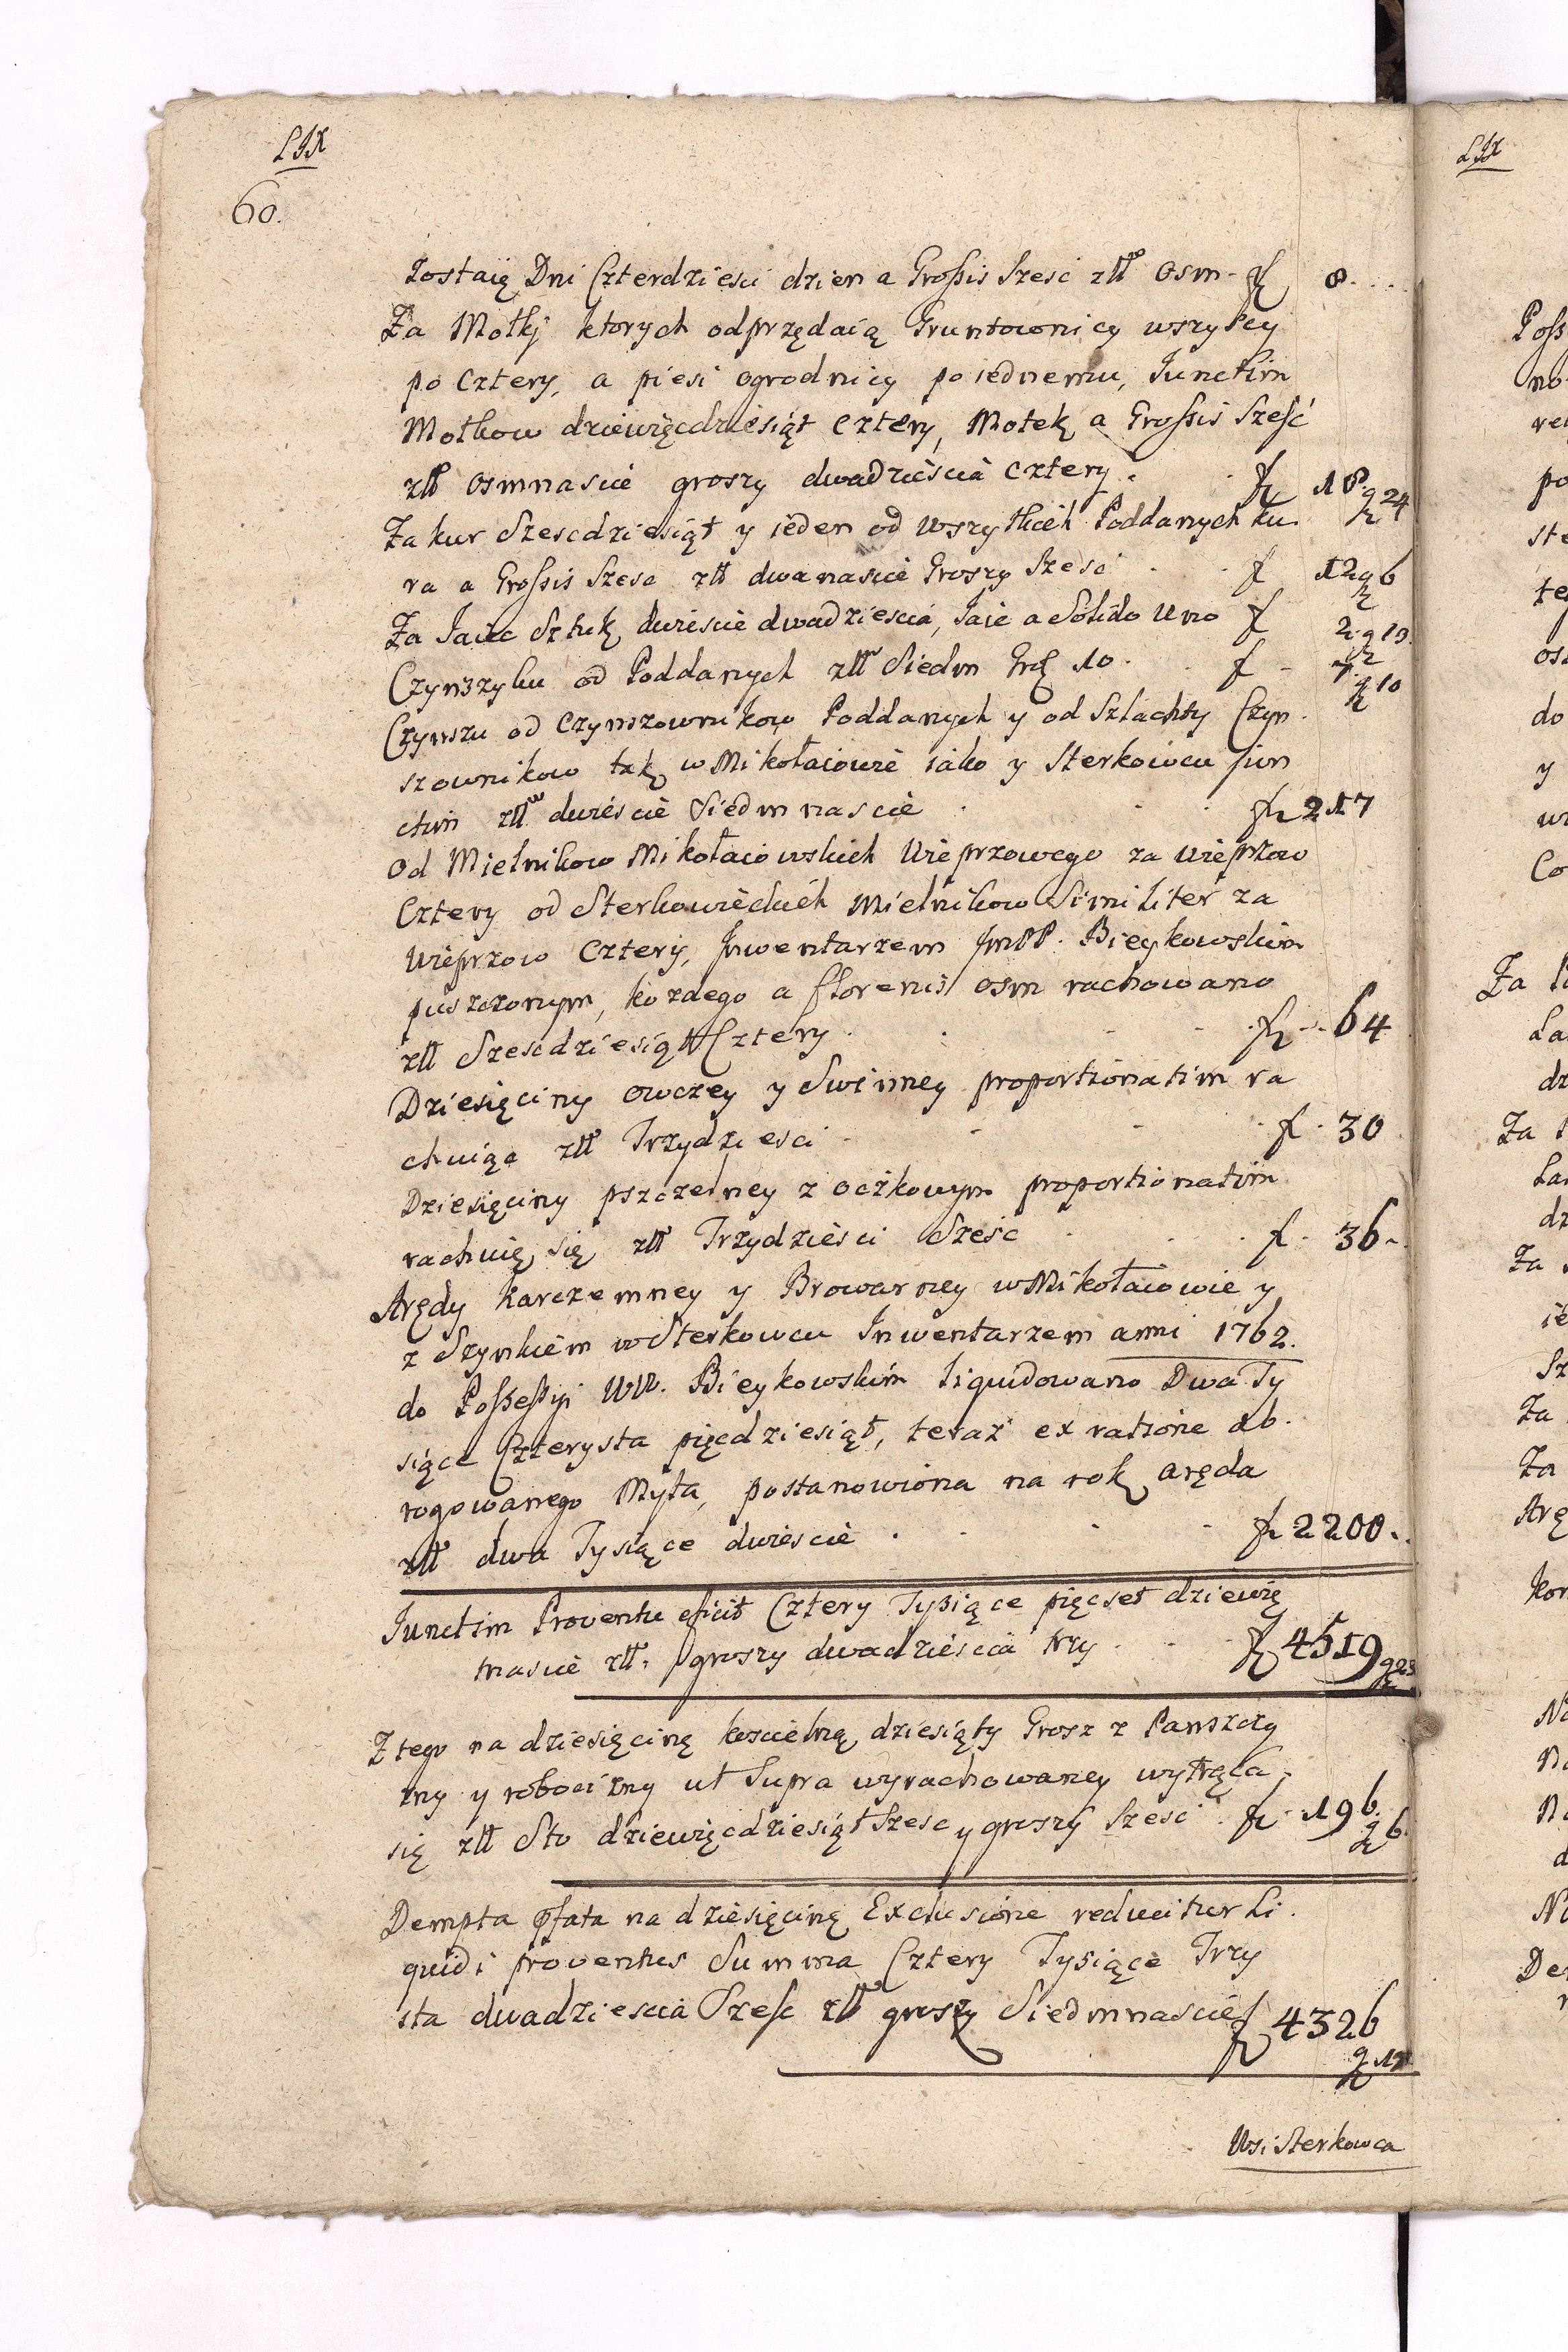 LIX
60.
Zostaię Dni Czterdziesci dzien a Grossis Szesc złł osm - f 8...
Za Motkj ktorych odprzędaią Gruntownicy wszyscy
po cztery, a piesi ogrodnicy po iednemu, Junctim
Motkow dziewięcdziesiąt cztery, Motek a Grossis Szesć
złł osmnascie groszy dwadziescia cztery. f 18. g 24
Za kur Szescdziesiąt y ieden od wszytkich Poddanych ku-
ra a Grossis Szesc złł dwanascie Groszy Szesc f 12 g 6
Za Jaiec Sztuk dwiescie dwadziescia, Jaie a Solido Uno f 2 g 13.
Czynszyku od Poddanych złł Siedm Gr 10. f 7. g 10
Czynszu od Czynszownikow Poddanych y od Szlachty Czyn-
szownikow tak w Mikołaiowie iako y Sterkowcu jun
ctim złł dwiescie Siedmnascie f 217
Od Mielnikow Mikołaiowskich Wieprzowego za wieprzow
Cztery od Sterkowieckich Mielnikow Similiter za
wieprzow Cztery, Jnwentarzem JmPP. Bieykowskim
puszczonym, kozdego a florenis osm rachowano
złł Szescdziesiąt Cztery f 64
Dziesięciny owczey y Swinney proportionatim ra
chuiąc złł Trzydziesci f 30
Dziesięciny pszczelney z oczkowym proportionatim
rachuię się złł Trzydziesci Szesc f 36
Arędy karczemney y Browarney w Mikołaiowie y
z Szynkiem w Sterkowcu Jnwentarzem anni 1762.
do Possessyi WW. Bieykowskim liquidowano Dwa Ty
siące Czterysta pięcdziesiąt, teraz ex ratione ab-
rogowanego Myta, postanowiona na rok aręda
złł dwa Tysiące dwiescie f 2200.
Junctim Proventu eficit Cztery Tysiące pięcset dziewię
tnascie złł. groszy dwadziescia trzy f 4519 g 23
Z tego na dziesięcinę koscielną dziesiąty Grosz z Panszczy
zny y robocizny ut Supra wyrachowaney wytrąca
się złł Sto dziewięcdziesiąt Szesc y groszy Szesc f 196. g 6.
Dempta pfata na dziesięcinę Exclusione reducitur Li-
quidi proventus Summa Cztery Tysiące Trzy
sta dwadziescia Szesc złł groszy Siedmnascie f 4326
g 17
Wsi Sterkowca
LIX
Poss
no
po
ste
te
do
y
Co
Za
La
dz
Za
La
dz
Za
Sz
Za
Za
Arę
kor
Na
d